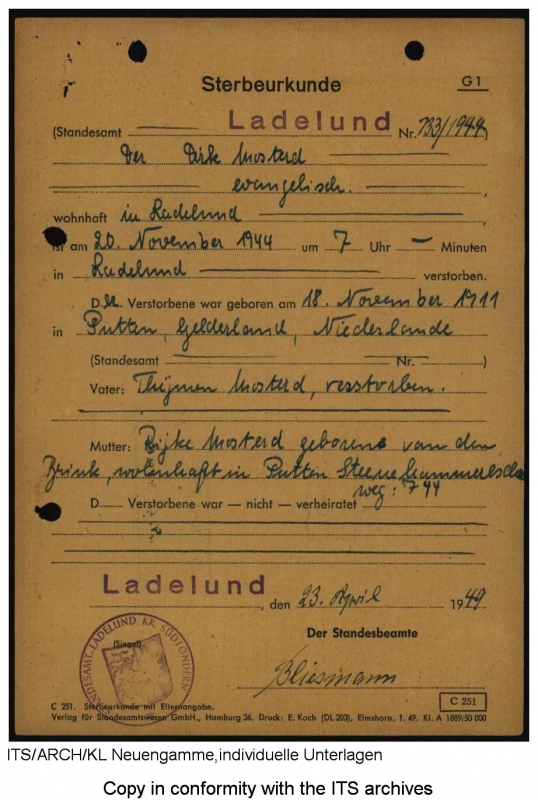 Sterbeurkunde
G 1
(Standesamt Ladelund Nr. 133/1944)
Der Dirk Mosterd
evangelisch.
wohnhaft in Ladelund
ist am 20. November 1944 um 7 Uhr — Minuten
in Ladelund verstorben.
Der Verstorbene war geboren am 18. November 1911
in Putten, Gelderland, Niederlande
(Standesamt Nr. )
Vater: Thijmen Mosterd, verstorben.
Mutter: Rijke Mosterd geborene van den
Brink, wohnhaft in Putten
weg: 744
D Verstorbene war — nicht — verheiratet
Ladelund, den 23. April 1949
Der Standesbeamte
(Siegel)
STANDESAMT LADELUND KR. SÜDTONDERN
Bliesmann
C 251. Sterbeurkunde mit Elternangabe.
C 251
Verlag für Standesamtswesen GmbH., Hamburg 36. Druck: E. Koch (DL 203), Elmshorn. 1. 49. Kl. A 1889/50 000
ITS/ARCH/KL Neuengamme, individuelle Unterlagen
Copy in conformity with the ITS archives